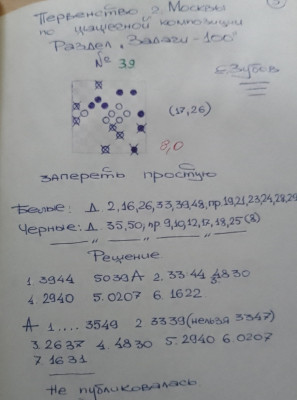 Первенство г. Москвы
по шашечной композиции
Раздел „Задачи-100"
№ 39
С. Зубов
(17,26)
8,0
запереть простую
Белые: Д. 2,16,26,33,39,48, пр. 19,21,23,24,28,29
Черные: Д. 35,50, пр 9,10,12,17,18,25 (3)
Решение
1. 3944 5039А 2. 33 44 4830
4. 2940 5. 0207 6. 1622.
А 1.... 3549 2 3339 (нельзя 3347)
3. 2637 4. 4830 5. 2940 6. 0207
7. 1631
Не публиковалась